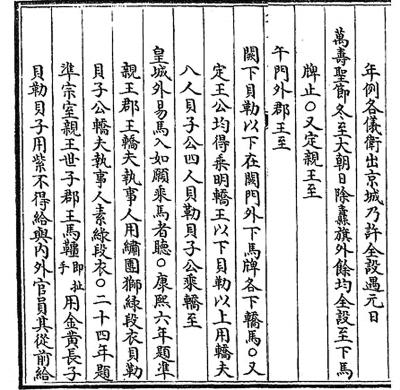 年例各儀衛出京城乃許全設遇元日
萬壽聖節冬至大朝日除纛旗外餘均全設至下馬
牌止○又定親王至
午門外郡王至
闕下貝勒以下在闕門外下馬牌各下轎馬○又
定王公均得乘明轎王以下貝勒以上用轎夫
八人貝子公四人貝勒貝子公乘轎至
皇城外易馬入如願乘馬者聽○康熙六年題準
親王郡王轎夫執事人用繡團獅綠段衣貝勒
貝子公轎夫執事人素綠段衣○二十四年題
準宗室親王世子郡王馬韁即扯手用金黃長子
貝勒貝子用紫不得給與內外官員其從前給